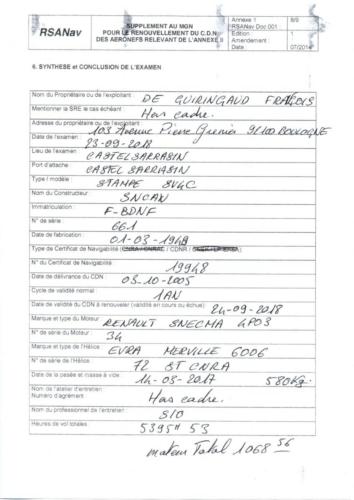 RSANav
SUPPLEMENT AU MGN
POUR LE RENOUVELLEMENT DU C.D.N
DES AERONEFS RELEVANT DE L'ANNEXE II
Annexe 1
8/9
RSANav Doc 001
Edition : 1
Amendement :
Date : 07/2014
6. SYNTHESE et CONCLUSION DE L'EXAMEN
Nom du Propriétaire ou de l'exploitant :
DE GUIRINGAUD FRANÇOIS
Mentionner la SRE le cas échéant :
Hors cadre.
Adresse du propriétaire ou de l'exploitant :
103 Avenue Pierre Grenier 92100 BOULOGNE
Date de l'examen :
23-09-2018
Lieu de l'examen :
CASTELSARRASIN
Port d'attache :
CASTEL SARRASIN
Type / modèle :
STAMPE SV4C
Nom du Constructeur
SNCAN
Immatriculation :
F-BDNF
N° de série :
661
Date de fabrication :
01-03-1948
Type de Certificat de Navigabilité (CNRA / CNRAC / CDNR /
N° du Certificat de Navigabilité
19948
Date de délivrance du CDN :
03-10-2005
Cycle de validité normal :
1AN
Date de validité du CDN à renouveler (validité en cours ou échue) :
24-09-2018
Marque et type du Moteur :
RENAULT SNECMA 4P03
N° de série du Moteur :
34
Marque et type de l'Hélice :
EVRA MERVILLE 6006
N° de série de l'Hélice :
72 ST CNRA
Date de la pesée et masse à vide :
14-03-2017 580Kg.
Nom de l'atelier d'entretien :
Numéro d'agrément :
Hors cadre.
Nom du professionnel de l'entretien :
S/O
Heures de vol totales :
5395H 53
moteur Total 1068 56